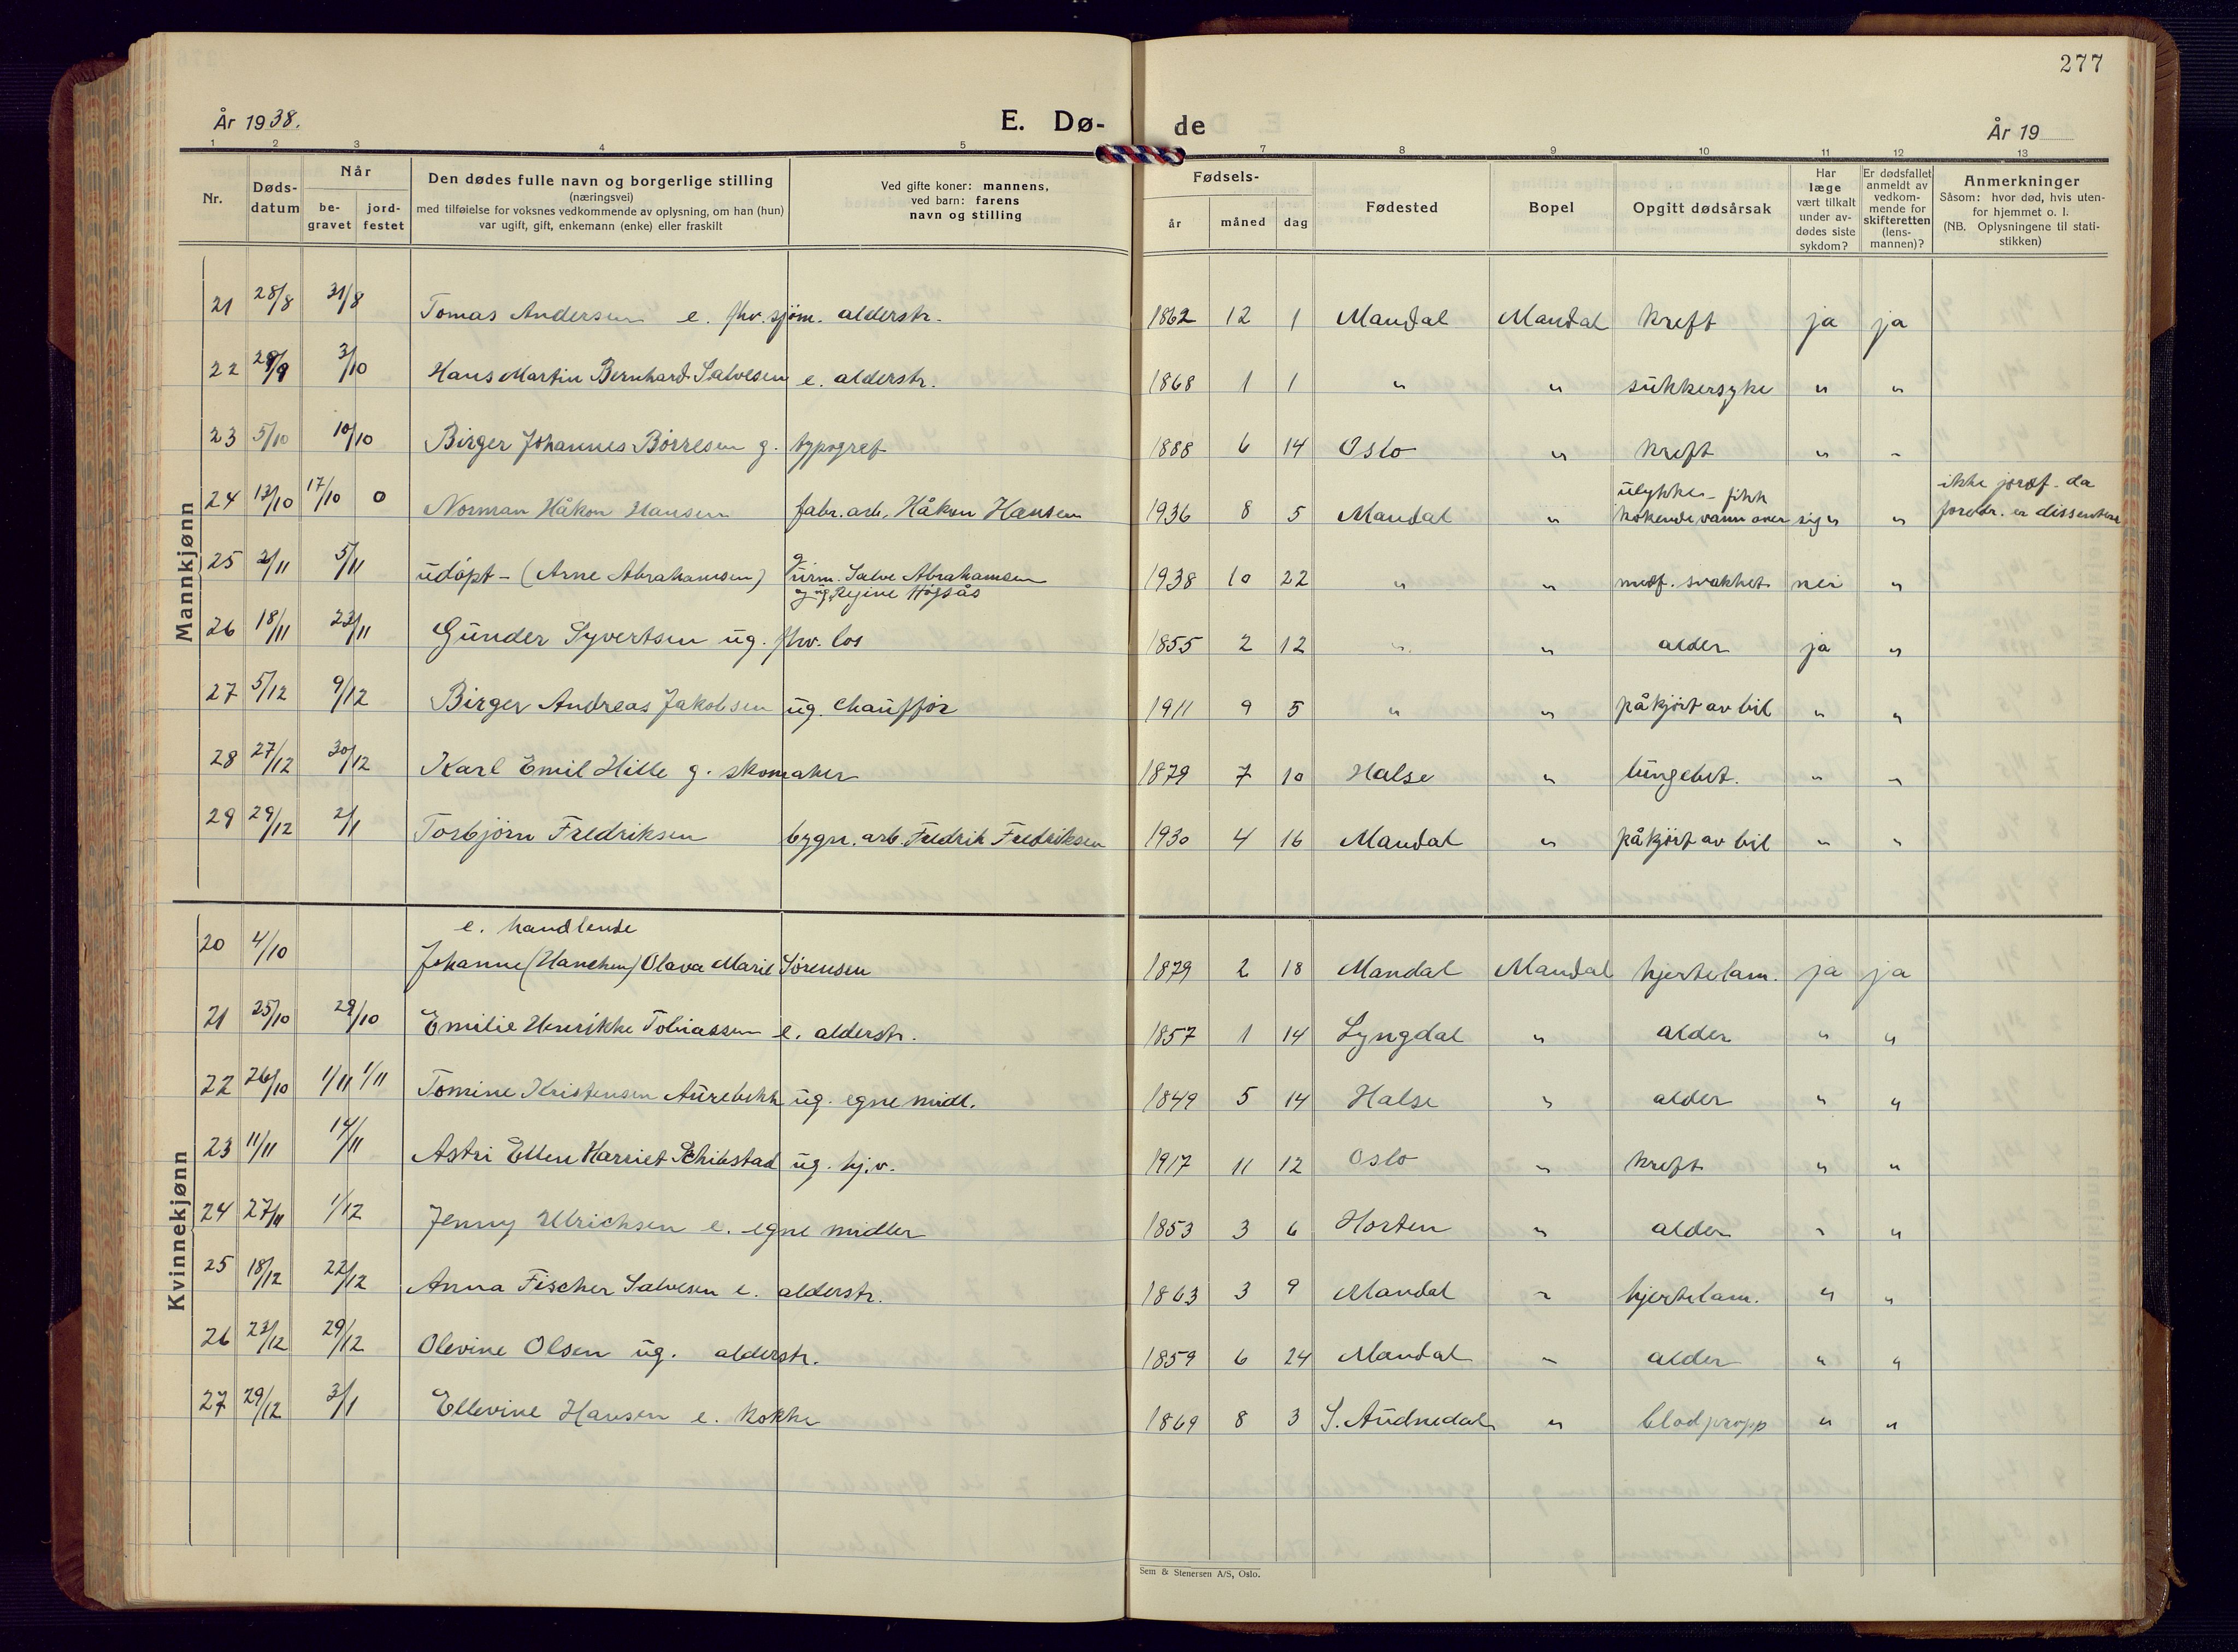 277
År 1938.
E. Dø-
de
År 19
1 2 3 4 5 7 8 9 10 11 12 13
Nr.
Døds-
datum
Når
be-
gravet
jord-
festet
Den dødes fulle navn og borgerlige stilling
(næringsvei)
med tilføielse for voksnes vedkommende av oplysning, om han (hun)
var ugift, gift, enkemann (enke) eller fraskilt
Ved gifte koner: mannens,
ved barn: farens
navn og stilling
Fødsels-
år måned dag
Fødested
Bopel
Opgitt dødsårsak
Har
læge
vært tilkalt
under av-
dødes siste
sykdom?
Er dødsfallet
anmeldt av
vedkom-
mende for
skifteretten
(lens-
mannen)?
Anmerkninger
Såsom: hvor død, hvis uten-
for hjemmet o. l.
(NB. Oplysningene til stati-
stikken)
Mannkjønn
21 28/8 31/8 Tomas Andersen e. fhv. sjøm. alderstr. 1862 12 1 Mandal Mandal kreft ja ja
22 29/9 3/10 Hans Martin Bernhard Salvesen e. alderstr. 1868 1 1 " " sukkersyke " "
23 5/10 10/10 Birger Johannes Børresen g. typograf 1888 6 14 Oslo " kreft " "
24 13/10 17/10 0 Norman Håkon Hansen fabr. arb. Håkon Hansen 1936 8 5 Mandal " ulykke - fikk
kokende vann over sig " " ikke jordf. da
foreldr. er dissentere
25 2/11 5/11 udøpt - (Arne Abrahamsen) g. urm. Salve Abrahamsen
og ug. Regine Høgsås 1938 10 22 " " medf. svakhet nei "
26 18/11 23/11 Gunder Syvertsen ug. fhv. los 1855 2 12 " " alder ja "
27 5/12 9/12 Birger Andreas Jakobsen ug. chauffør 1911 9 5 " " påkjørt av bil " "
28 27/12 30/12 Karl Emil Hille g. skomaker 1879 7 10 Halse " lungebet. " "
29 29/12 2/1 Torbjørn Fredriksen bygn. arb. Fredrik Fredriksen 1930 4 16 Mandal " påkjørt av bil " "
Kvinnekjønn
e. handlende
20 4/10 Johanne (Hanchen) Olava Marie Sørensen 1879 2 18 Mandal Mandal hjertelam. ja ja
21 25/10 29/10 Emilie Henrikke Tobiassen e. alderstr. 1857 1 14 Lyngdal " alder " "
22 26/10 1/11 1/11 Tomine Kristensen Aurebekk ug. egne midl. 1849 5 14 Halse " alder " "
23 11/11 14/11 Astri Ellen Harriet Schibstad ug. hj.v. 1917 11 12 Oslo " kreft " "
24 27/11 1/12 Jenny Ulrichsen e. egne midler 1853 3 6 Horten " alder " "
25 18/12 22/12 Anna Fischer Salvesen e. alderstr. 1863 3 9 Mandal " hjertelam. " "
26 23/12 29/12 Olevine Olsen ug. alderstr. 1859 6 24 Mandal " alder " "
27 29/12 3/1 Ellevine Hansen e. kokke 1869 8 3 S. Audnedal " blodpropp " "
Sem & Stenersen A/S, Oslo.